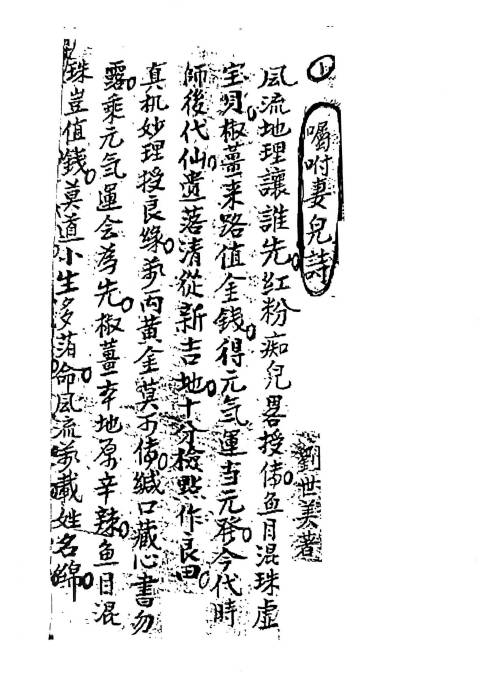 上
囑咐妻兒詩
劉世美著
風流地理讓誰先紅粉痴兒畧授传鱼目混珠虚
宝貝椒薑来路值金錢得元气運当元發今代時
師後代仙遺落清從新吉地十分檢點作良田
真机妙理授良缘萬両黄金莫乱传緘口藏心書勿
露乘元气運会為先椒薑本地原辛辣鱼目混
珠豈值錢莫道小生落命風流萬載姓名綿